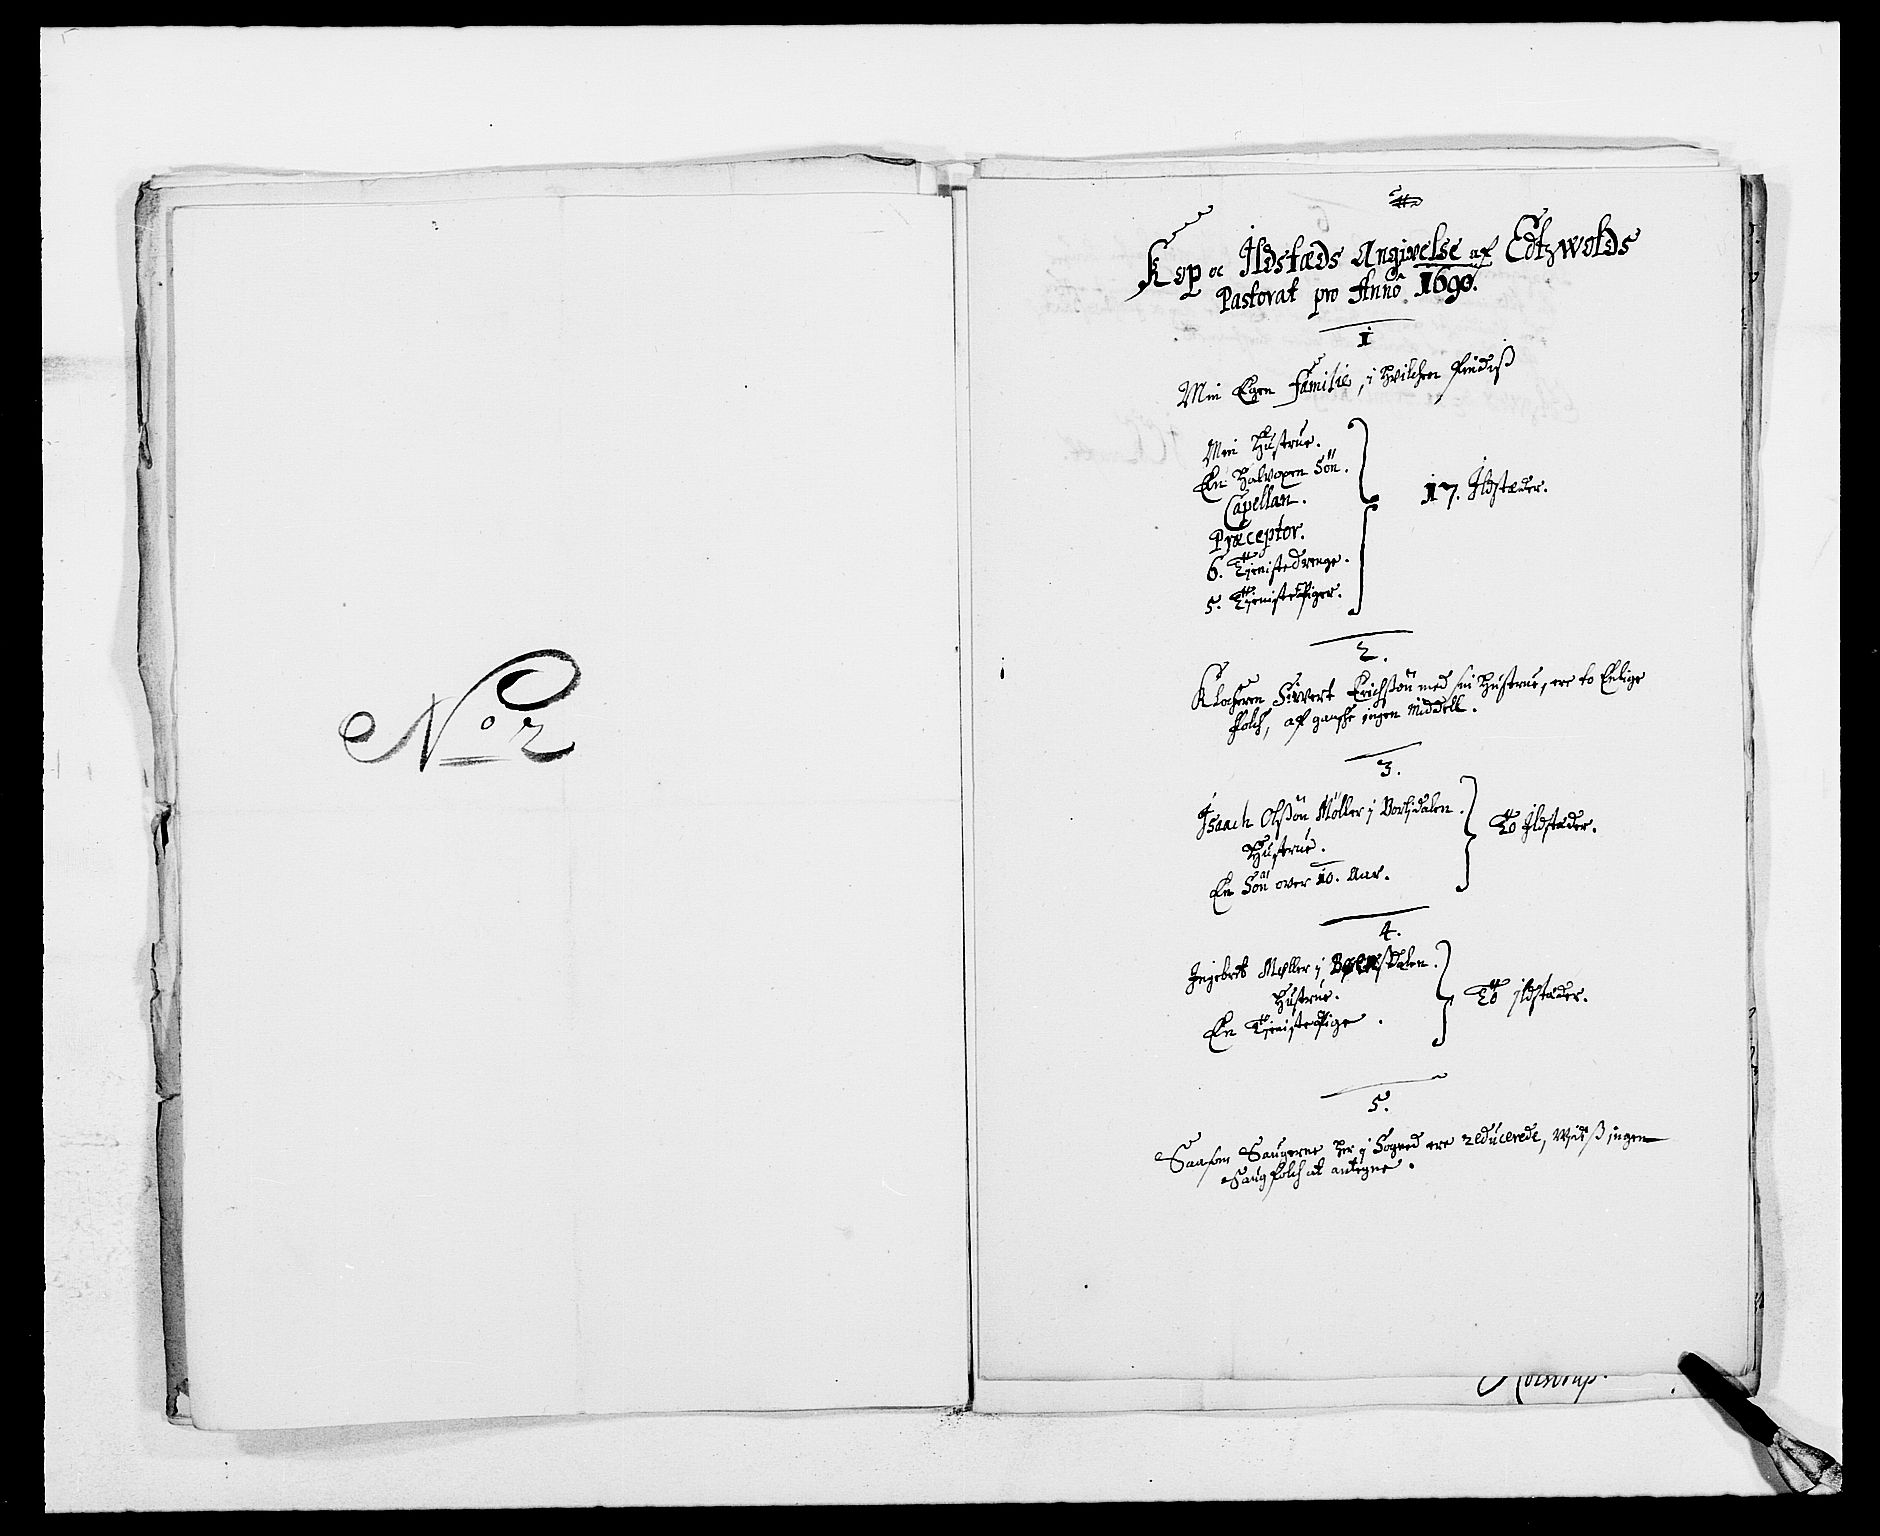 No 2
Kop oc Ildstæds Angivelse af Edtzwolds
Pastorat pro Anno 1690.
1
Min Egen familie, i hvilchen findiß
Min Hustrue.
En halvoxen Søn.
Capellan.
Præceptor.
6. Tienistedrenge.
5. Tienistepiger.
17. Ildstæder.
2.
Klocheren Sivert Erichsøn med sin Hustrue, ere to Enlige
folch, af ganske ingen Middell.
3.
Isaach Olssøn Møller i
Hustrue.
En Søn over 10. Aar.
To Ildstæder.
4.
Ingebret Møller i
Hustrue.
En Tienistepige.
To Ildstæder.
5.
Saasom Saugerne her i Sognet ere reducerede, Vidis ingen
Saugfolch at antegne.